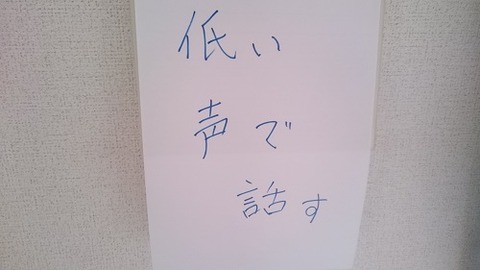 低い
声で
話す